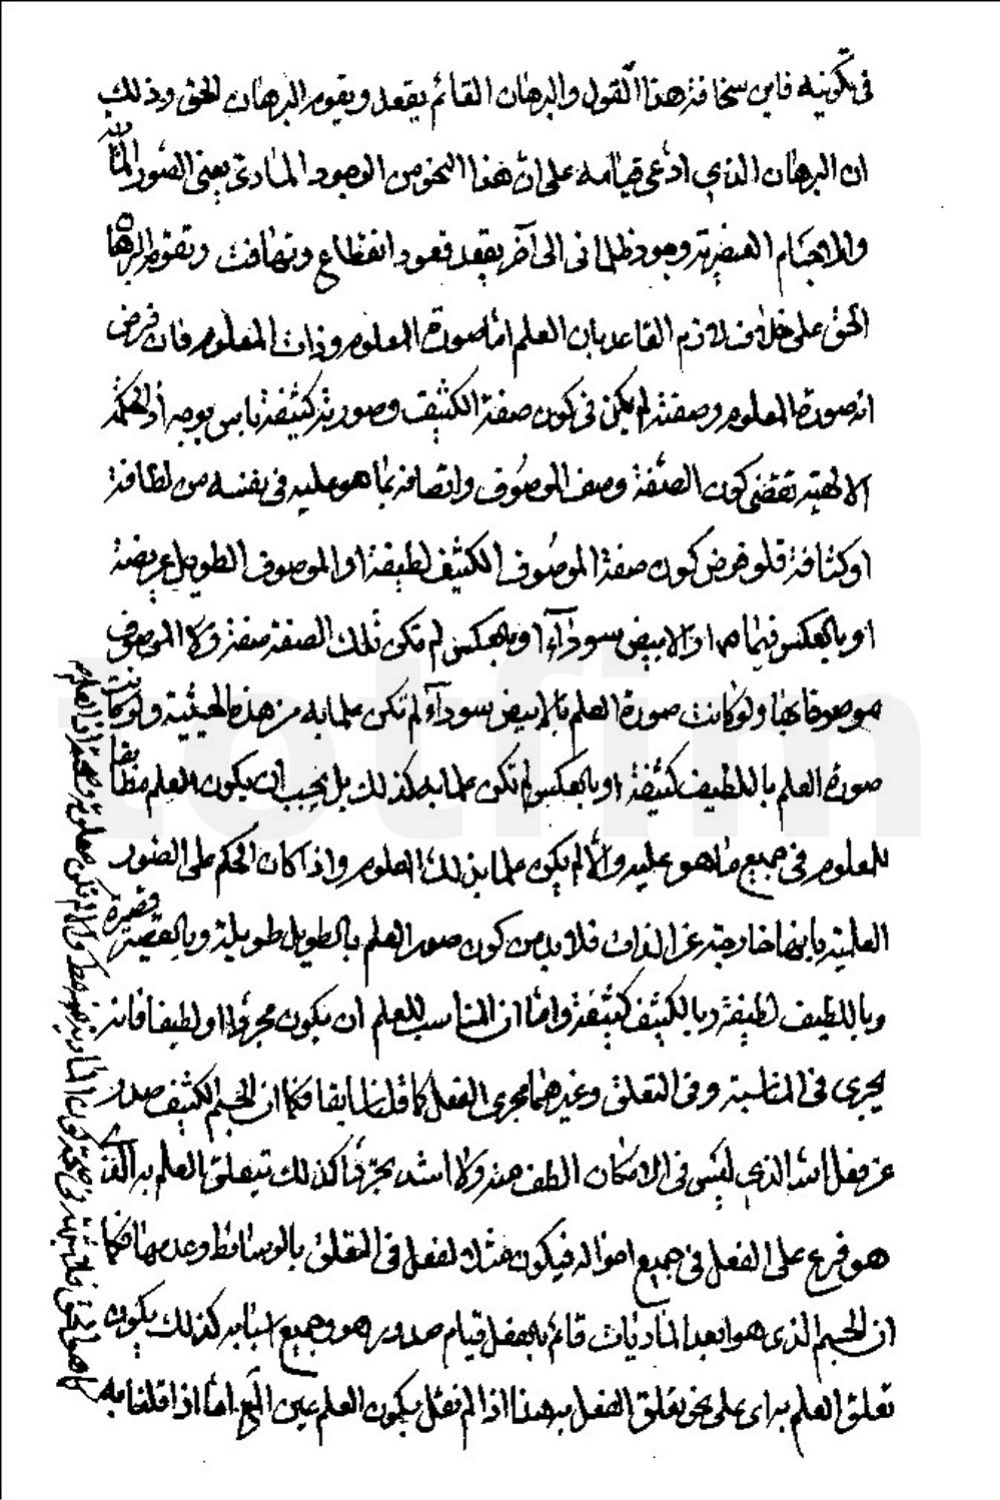 في تكوينه فاين سخافة هذا القول والبرهان القائم يقعد ويقوم البرهان الحق وذلك
ان البرهان الذي ادعى قيامه على ان هذا النحو من الوجود المادي يعني الصور المثالية
والاجسام العنصرية وجود ظلماني الى آخر يقعد قعود انقطاع وتهافت ويقوم البرهان
الحق على خلاف لازم القاعد بان العلم اما صورة المعلوم وذات المعلوم فان فرض
انه صورة المعلوم وصفته لم يكن في كون صفة الكثيف وصورته كثيفة باس بوجه اذ الحكمة
الالهية تقتضي كون الصفة وصف الموصوف واتصافه بما هو عليه في نفسه من لطافة
او كثافة فلو فرض كون صفة الموصوف الكثيف لطيفة او الموصوف الطويل عريضة
او بالعكس فيهما او الابيض سوداء او بالعكس لم تكن تلك الصفة صفة ولا الموصوف
موصوفا بها ولو كانت صورة العلم بالابيض سوداء لم تكن علما به من هذه الحيثية ولو كانت
صورة العلم باللطيف كثيفة او بالعكس لم تكن علما به كذلك بل يجب ان يكون العلم مطابقا
للمعلوم في جميع ما هو عليه والا لم يكن علما بذلك المعلوم واذا كان الحكم على الصور
العلمية بانها خارجة عن الذات فلا بد من كون صور العلم بالطويل طويلة وبالقصير قصيرة
وباللطيف لطيفة وبالكثيف كثيفة واما ان المناسب للعلم ان يكون مجردا او لطيفا فانه
يجري في المناسبة وفي التعلق وغيرهما مجرى الفعل كما قلنا سابقا فكما ان الجسم الكثيف صدر
عن فعل الله الذي ليس في الامكان الطف منه ولا اشد تجردا كذلك تيعلق العلم به الذي
هو فرع على الفعل في جميع احواله فيكون مثل الفعل في التعلق بالوسائط وعدمها فكما
ان الجسم الذي هو ابعد الماديات قائم بالفعل قيام صدور هو وجميع اسبابه كذلك يكون
تعلق العلم به اي على نحو تعلق الفعل به هذا اذا لم نقل بكون العلم عين المع اما اذا قلنا به